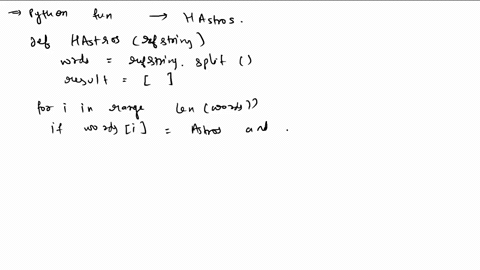 ⇒ Python fun → HAstros.
def HAstros (refstring)
words = refstring. split ()
result = [ ]
for i in range len (words))
if words [i] = Astros and .